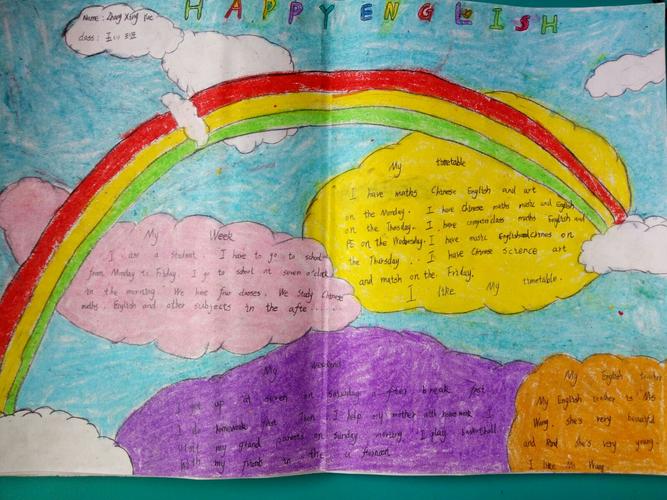 HAPPY ENGLISH
Name: Zhang Xing
class: 五(1)班
My timetable
I have maths Chinese English and art
on the Monday. I have Chinese maths music and English
on the Thusday. I have computerclass maths English and
PE on the Wednesday. I have music English and Chinese on
the Thursday... I have Chinese Science art
and matsh on the Friday.
I like My timetable.
My Week
I am a student. I have to go to school
from Monday to Friday. I go to school at seven o'clock
in the morning. We have four classes. We Study Chinese
maths, English and other subjects in the afte.....
My Weekend
I get up at seven on saturday after break fast
I do homework Next Then I help my mother with housework I
Visit my grand parents on Sunday I play basketball
With my friend in the afternoon
My English teacher
My English teacher is Ms
Wang. she's very beautiful
and she's very young
I like Ms Wang